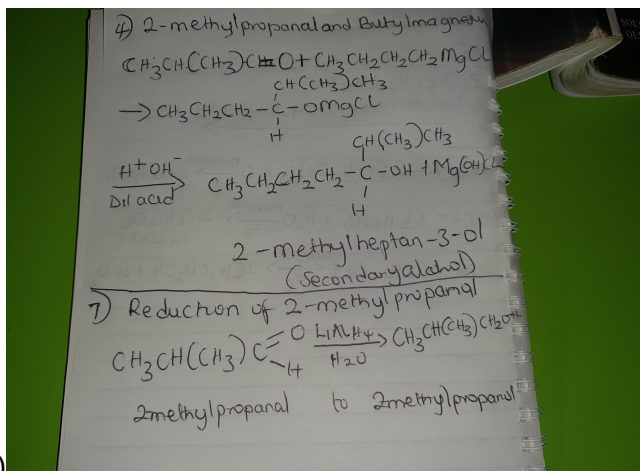 4) 2-methylpropanal and Butylmagnesiu
CH3CH(CH3)CH=O + CH3CH2CH2CH2MgCl
CH(CH3)CH3
→ CH3CH2CH2-C-OMgCl
H
CH(CH3)CH3
H+OH-
Dil acid
CH3CH2CH2CH2-C-OH + Mg(OH)Cl
H
2-methylheptan-3-ol
(Secondaryalahol)
7) Reduction of 2-methylpropanal
CH3CH(CH3)C=O
-H
LiAlH4
H2O
→ CH3CH(CH3)CH2OH
2methylpropanal to 2methylpropanol